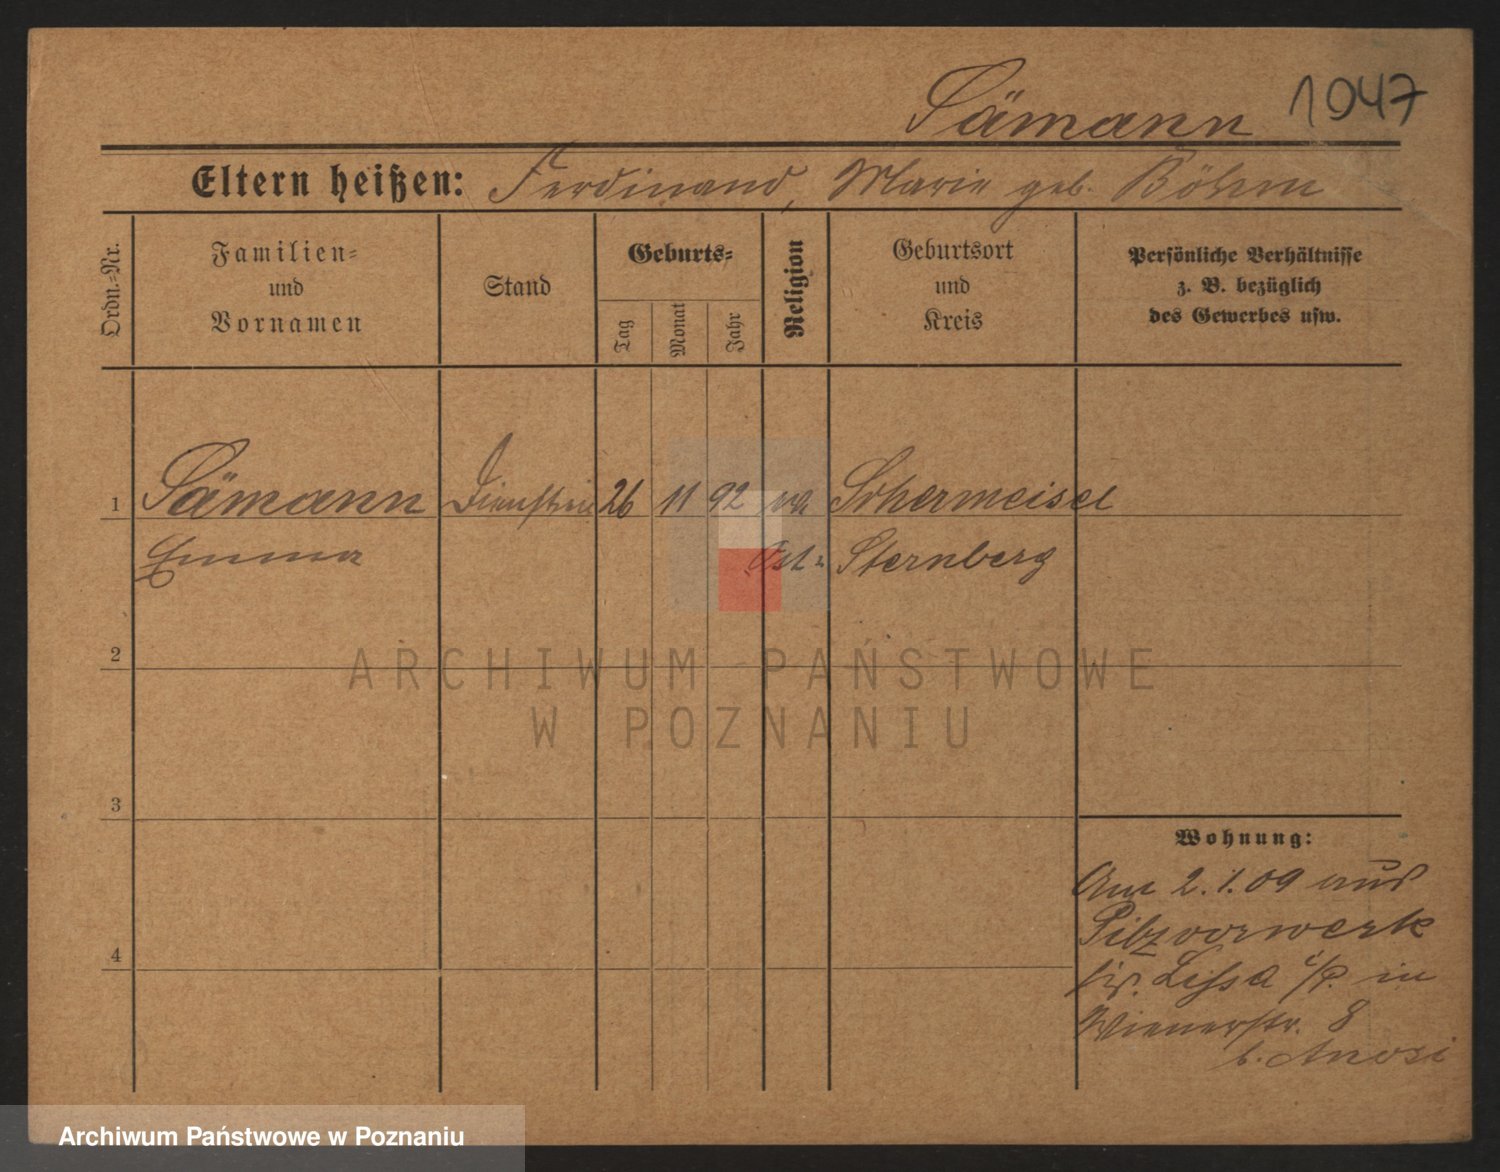 Sämann 1947
Eltern heißen: Ferdinand, Marie geb. Böhm
Ordn.-Nr.
Familien-
und
Vornamen
Stand
Geburts-
Tag
Monat
Jahr
Religion
Geburtsort
und
Kreis
Persönliche Verhältnisse
z. B. bezüglich
des Gewerbes usw.
1 Sämann 26 11 92 Schermeisel
Emma Ost- Sternberg
2
3
4
Wohnung:
Am 2.1.09 aus
Pilzvorwerk
Lissa i/P. in
Wienerstr. 8
b.
ARCHIWUM PAŃSTWOWE
W POZNANIU
Archiwum Państwowe w Poznaniu